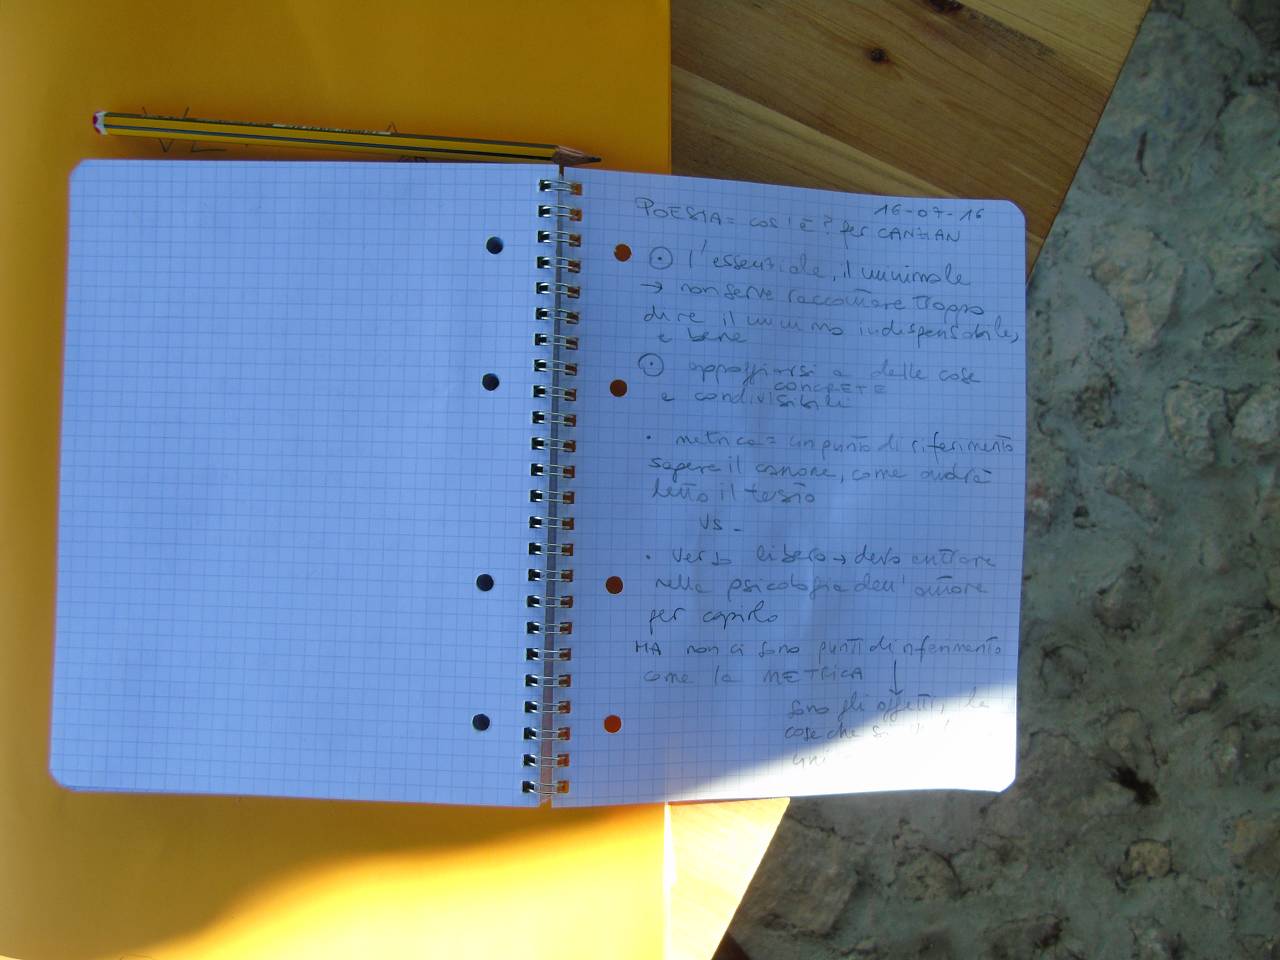 16-07-16
POESIA = cos'è? per CANZIAN
⊙ l'essenziale, il minimale
→ non serve raccontare troppo
dire il minimo indispensabile,
e bene
⊙ appoggiarsi a delle cose
CONCRETE
e condivisibili
• metrica = un punto di riferimento
sapere il canone, come andrà
letto il testo
VS -
• verso libero → devo entrare
nella psicologia dell'autore
per capirlo
MA non ci sono punti di riferimento
come la METRICA ↓
sono gli oggetti, le
cose che